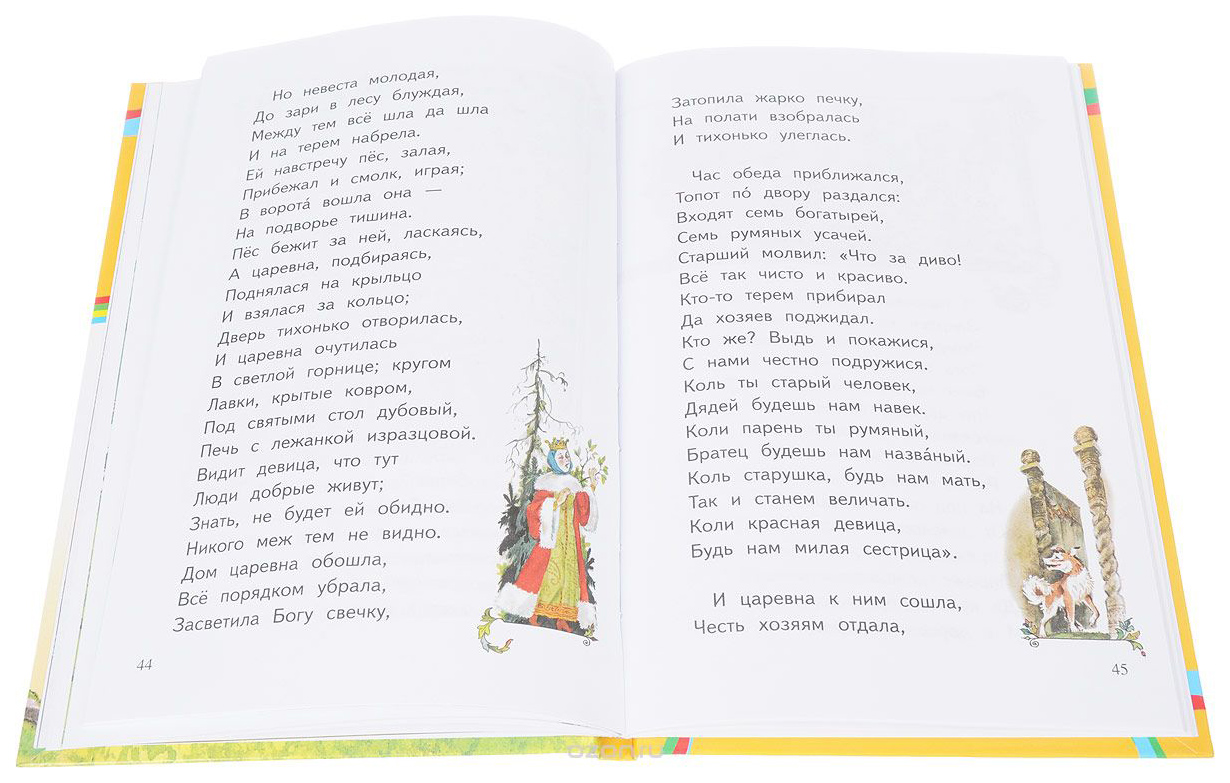 Но невеста молодая,
До зари в лесу блуждая,
Между тем всё шла да шла
И на терем набрела.
Ей навстречу пёс, залая,
Прибежал и смолк, играя;
В воротá вошла она —
На подворье тишина.
Пёс бежит за ней, ласкаясь,
А царевна, подбираясь,
Поднялася на крыльцо
И взялася за кольцо;
Дверь тихонько отворилась,
И царевна очутилась
В светлой горнице; кругом
Лавки, крытые ковром,
Под святыми стол дубовый,
Печь с лежанкой изразцовой.
Видит девица, что тут
Люди добрые живут;
Знать, не будет ей обидно.
Никого меж тем не видно.
Дом царевна обошла,
Всё порядком убрала,
Засветила Богу свечку,
44
Затопила жарко печку,
На полати взобралась
И тихонько улеглась.
Час обеда приближался,
Топот пó двору раздался:
Входят семь богатырей,
Семь румяных усачей.
Старший молвил: «Что за диво!
Всё так чисто и красиво.
Кто-то терем прибирал
Да хозяев поджидал.
Кто же? Выдь и покажися,
С нами честно подружися.
Коль ты старый человек,
Дядей будешь нам навек.
Коли парень ты румяный,
Братец будешь нам назвáный.
Коль старушка, будь нам мать,
Так и станем величать.
Коли красная девица,
Будь нам милая сестрица».
И царевна к ним сошла,
Честь хозяям отдала,
45
ozon.ru